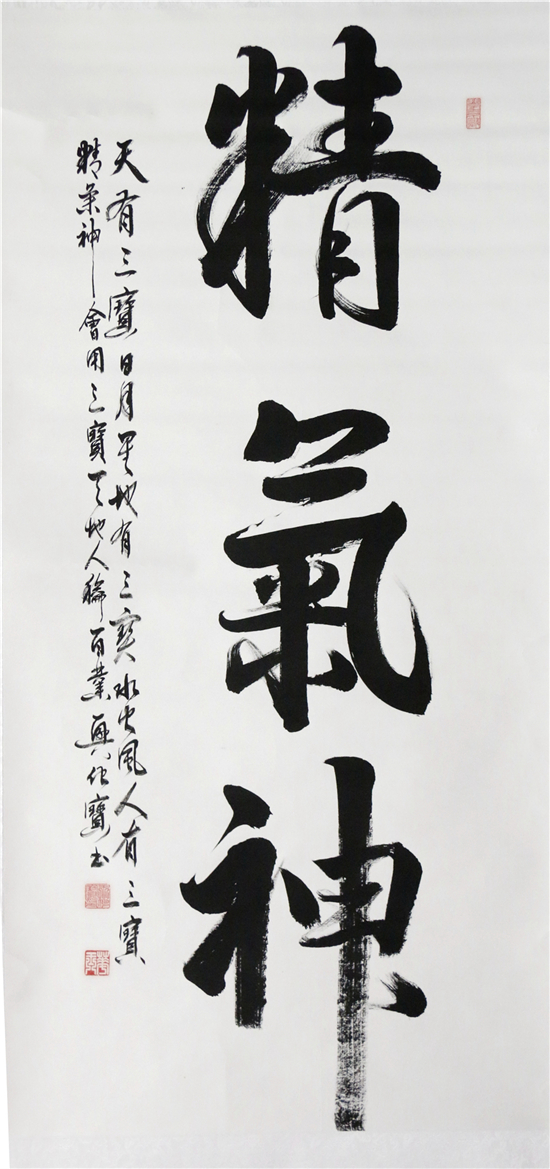 精氣神
天有三寶日月星地有三寶水火風人有三寶
精氣神會用三寶天地人 百業興 寶書